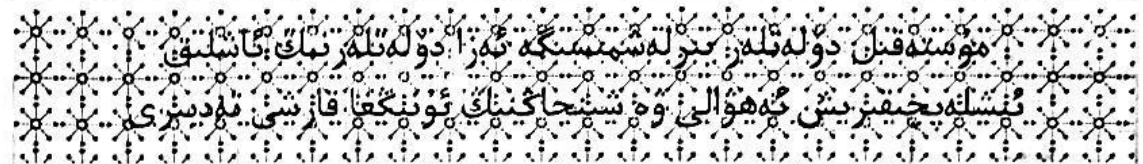 مۇستەقىل دۆلەتلەر بىرلەشمىسىگە ئەزا دۆلەتلەرنىڭ ئاشلىق
ئىشلەپچىقىرىش ئەھۋالى ۋە شىنجاڭنىڭ ئۇنىڭغا قارشى تەدبىرى